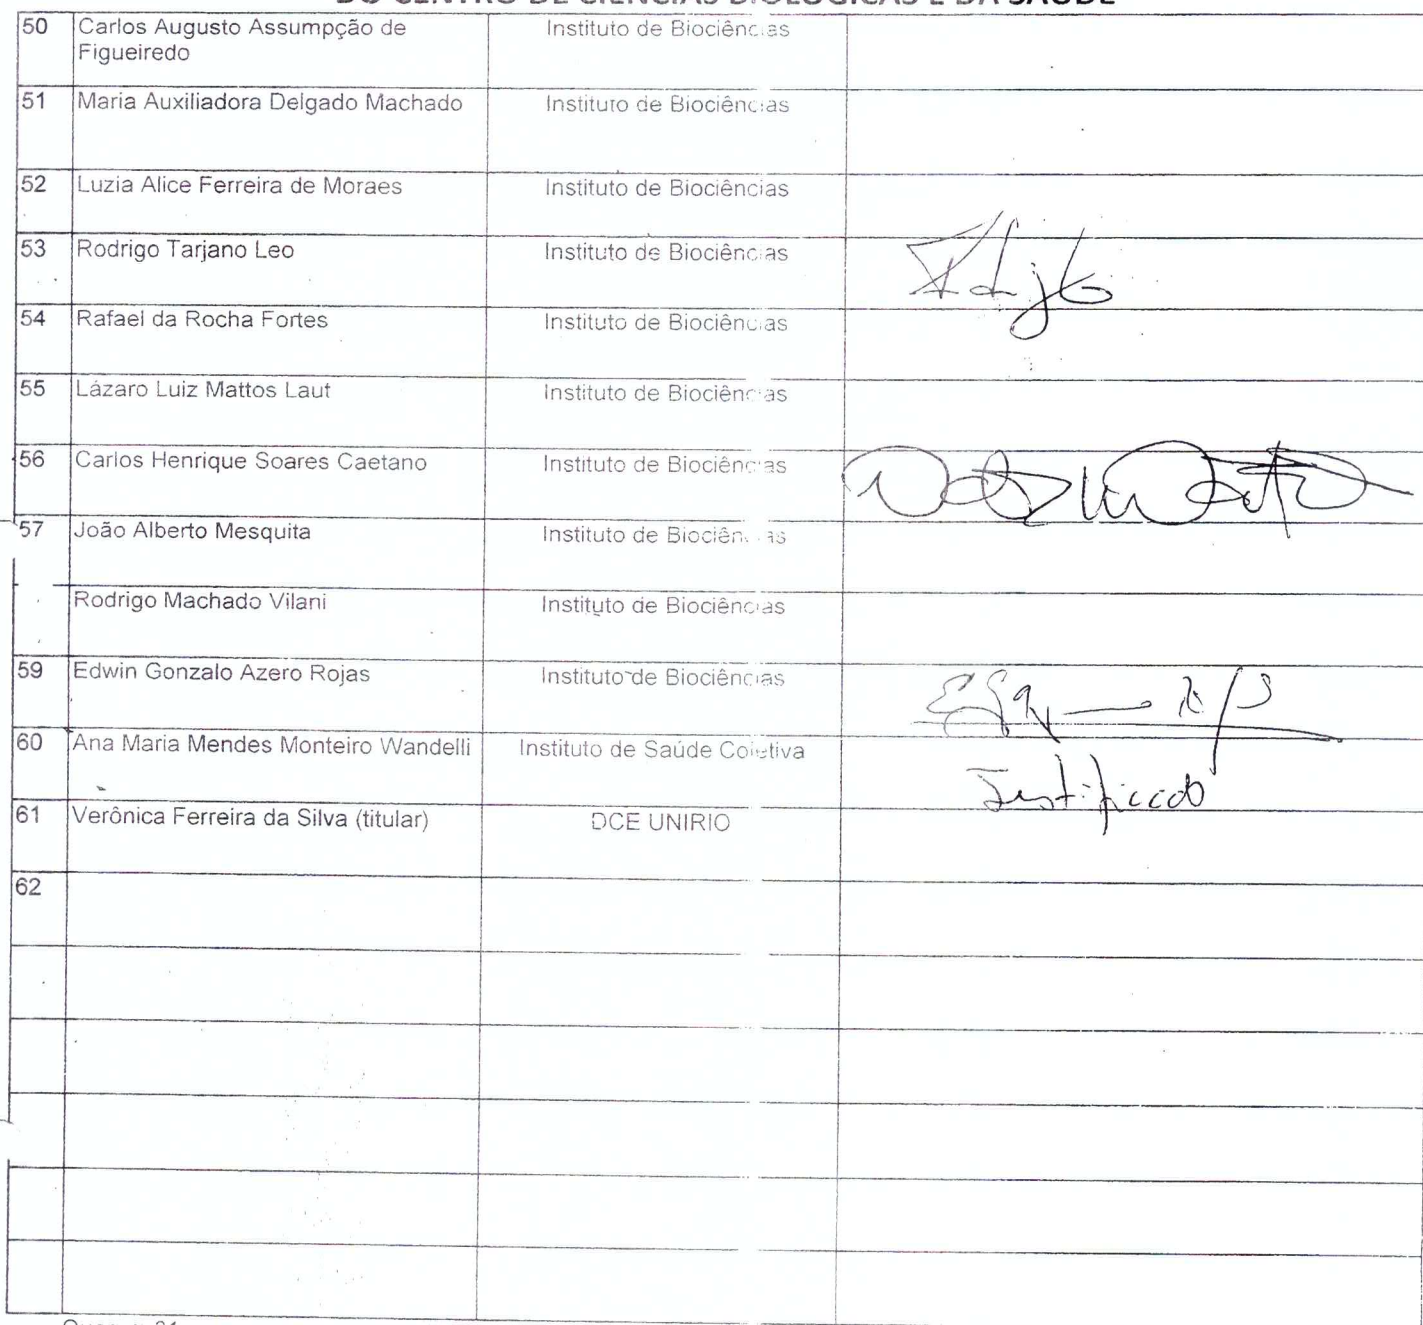 DO CENTRO DE CIÊNCIAS BIOLÓGICAS E DA SAÚDE
50 Carlos Augusto Assumpção de Figueiredo Instituto de Biociências
51 Maria Auxiliadora Delgado Machado Instituto de Biociências
52 Luzia Alice Ferreira de Moraes Instituto de Biociências
53 Rodrigo Tarjano Leo Instituto de Biociências
54 Rafael da Rocha Fortes Instituto de Biociências
55 Lázaro Luiz Mattos Laut Instituto de Biociências
56 Carlos Henrique Soares Caetano Instituto de Biociências
57 João Alberto Mesquita Instituto de Biociências
Rodrigo Machado Vilani Instituto de Biociências
59 Edwin Gonzalo Azero Rojas Instituto de Biociências
60 Ana Maria Mendes Monteiro Wandelli Instituto de Saúde Coletiva Justificado
61 Verônica Ferreira da Silva (titular) DCE UNIRIO
62